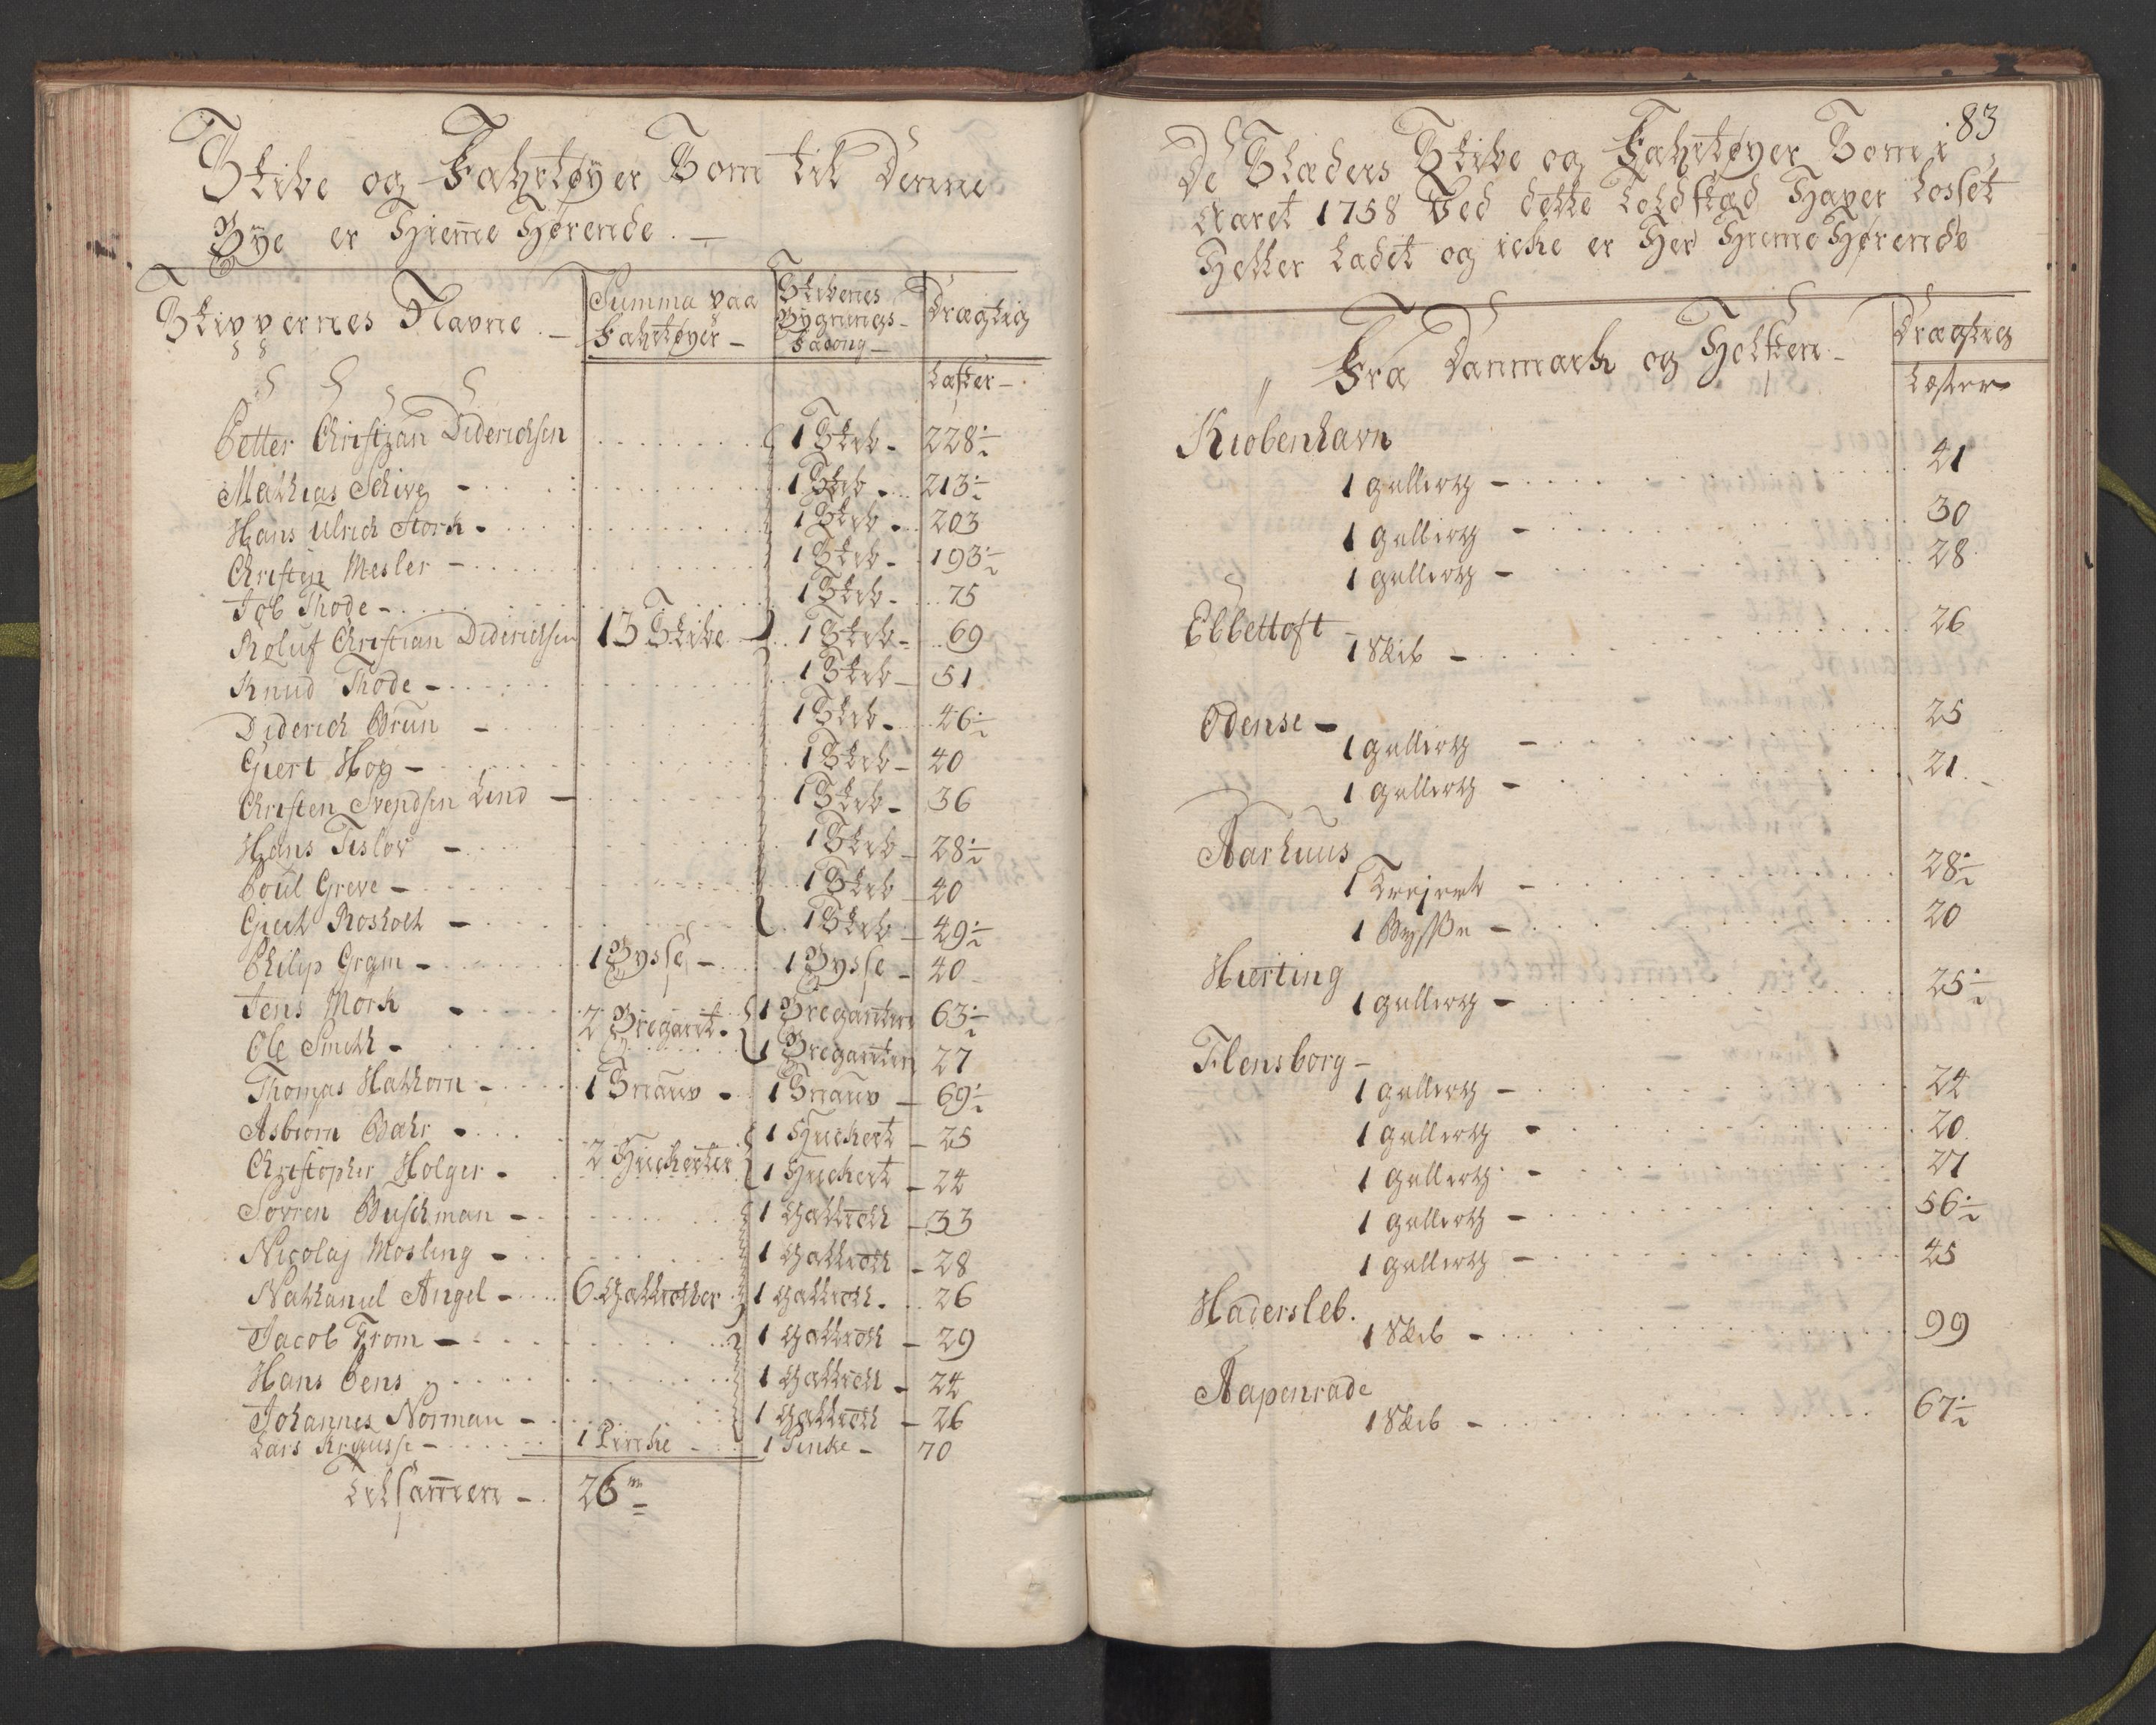 Skibe og Fahrtøyer Som til Denne
Bÿe er Hieme Hørende. —
Skippernes Navne. — Summa paa Fahrtøyer — Skibenes Bÿgnings- Facong — Drægtig
Læster —
Petter Christian Diderichsen 1 Skib - 228 1/2
Mathias Schive - 1 Skib - 213 1/2
Hans Ulrich Stork - 1 Skib - 203
Christen Mesler - 1 Skib - 193 1/2
Job Thode - 1 Skib - 75
Roluf Christian Diderichsen 13 Skibe 1 Skib - 69
Knud Thode - 1 Skib - 51
Diderich Brun - 1 Skib - 46 1/2
Giert Hoy - 1 Skib - 40
Christen Svendsen Lind - 1 Skib - 36
Hans Tislov - 1 Skib - 28 1/2
Poul Greve - 1 Skib 40
Giert Rosholt - 1 Skib - 49 1/2
Philip Gram - 1 Bysse - 1 Bysse - 40
Jens Mork - 2 Bregant. 1 Breganten 63 1/2
Ole Smith - 1 Breganten 27
Thomas Hathorn - 1 Snauv - 1 Snauv - 69 1/2
Asbiorn Bahr - 1 Huckert - 25
Christopher Holger - 2 Huckerter 1 Huckert - 24
Sovren Buschman - 1 Gallioth - 33
Nicolaj Mosling - 1 Gallioth - 28
Nathaniel Angel - 6 Galliother 1 Gallioth - 26
Jacob From - 1 Gallioth - 29
Hans Pens 1 Gallioth - 24
Johannes Norman - 1 Gallioth - 26
Lars Krausse - 1 Pincke - 1 Pinke - 70
Tilsamen - 26
83
De Stæders Skibe og Fahrtøyer Som i
Aaret 1758 Ved dette Toldsted Haver Losset
Heller Ladet og icke er Her Hieme Hørende
Fra Danmark og Holsten - Drægtig
Læster
Kiøbenhavn
1 Gallioth - 41
1 Gallioth - 30
1 Gallioth - 28
Ebbeltoft
1 Skib - 26
Odense -
1 Gallioth - 25
1 Gallioth - 21
Aarhuus
1 Krejert - 28 1/2
1 Bysse - 20
Hierting
1 Gallioth - 25 1/2
Flensborg -
1 Gallioth - 24
1 Gallioth - 20
1 Gallioth - 27
1 Gallioth - 56 1/2
1 Gallioth - 45
Hadersleb.
1 Skib - 99
Aapenrade
1 Skib - 67 1/2